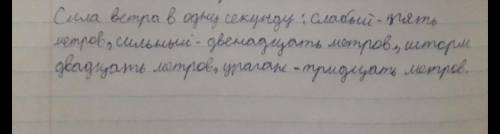 Сила ветра в одну секунду: слабый - пять
метров, сильный - двенадцать метров, шторм
двадцать метров, ураган - тридцать метров.